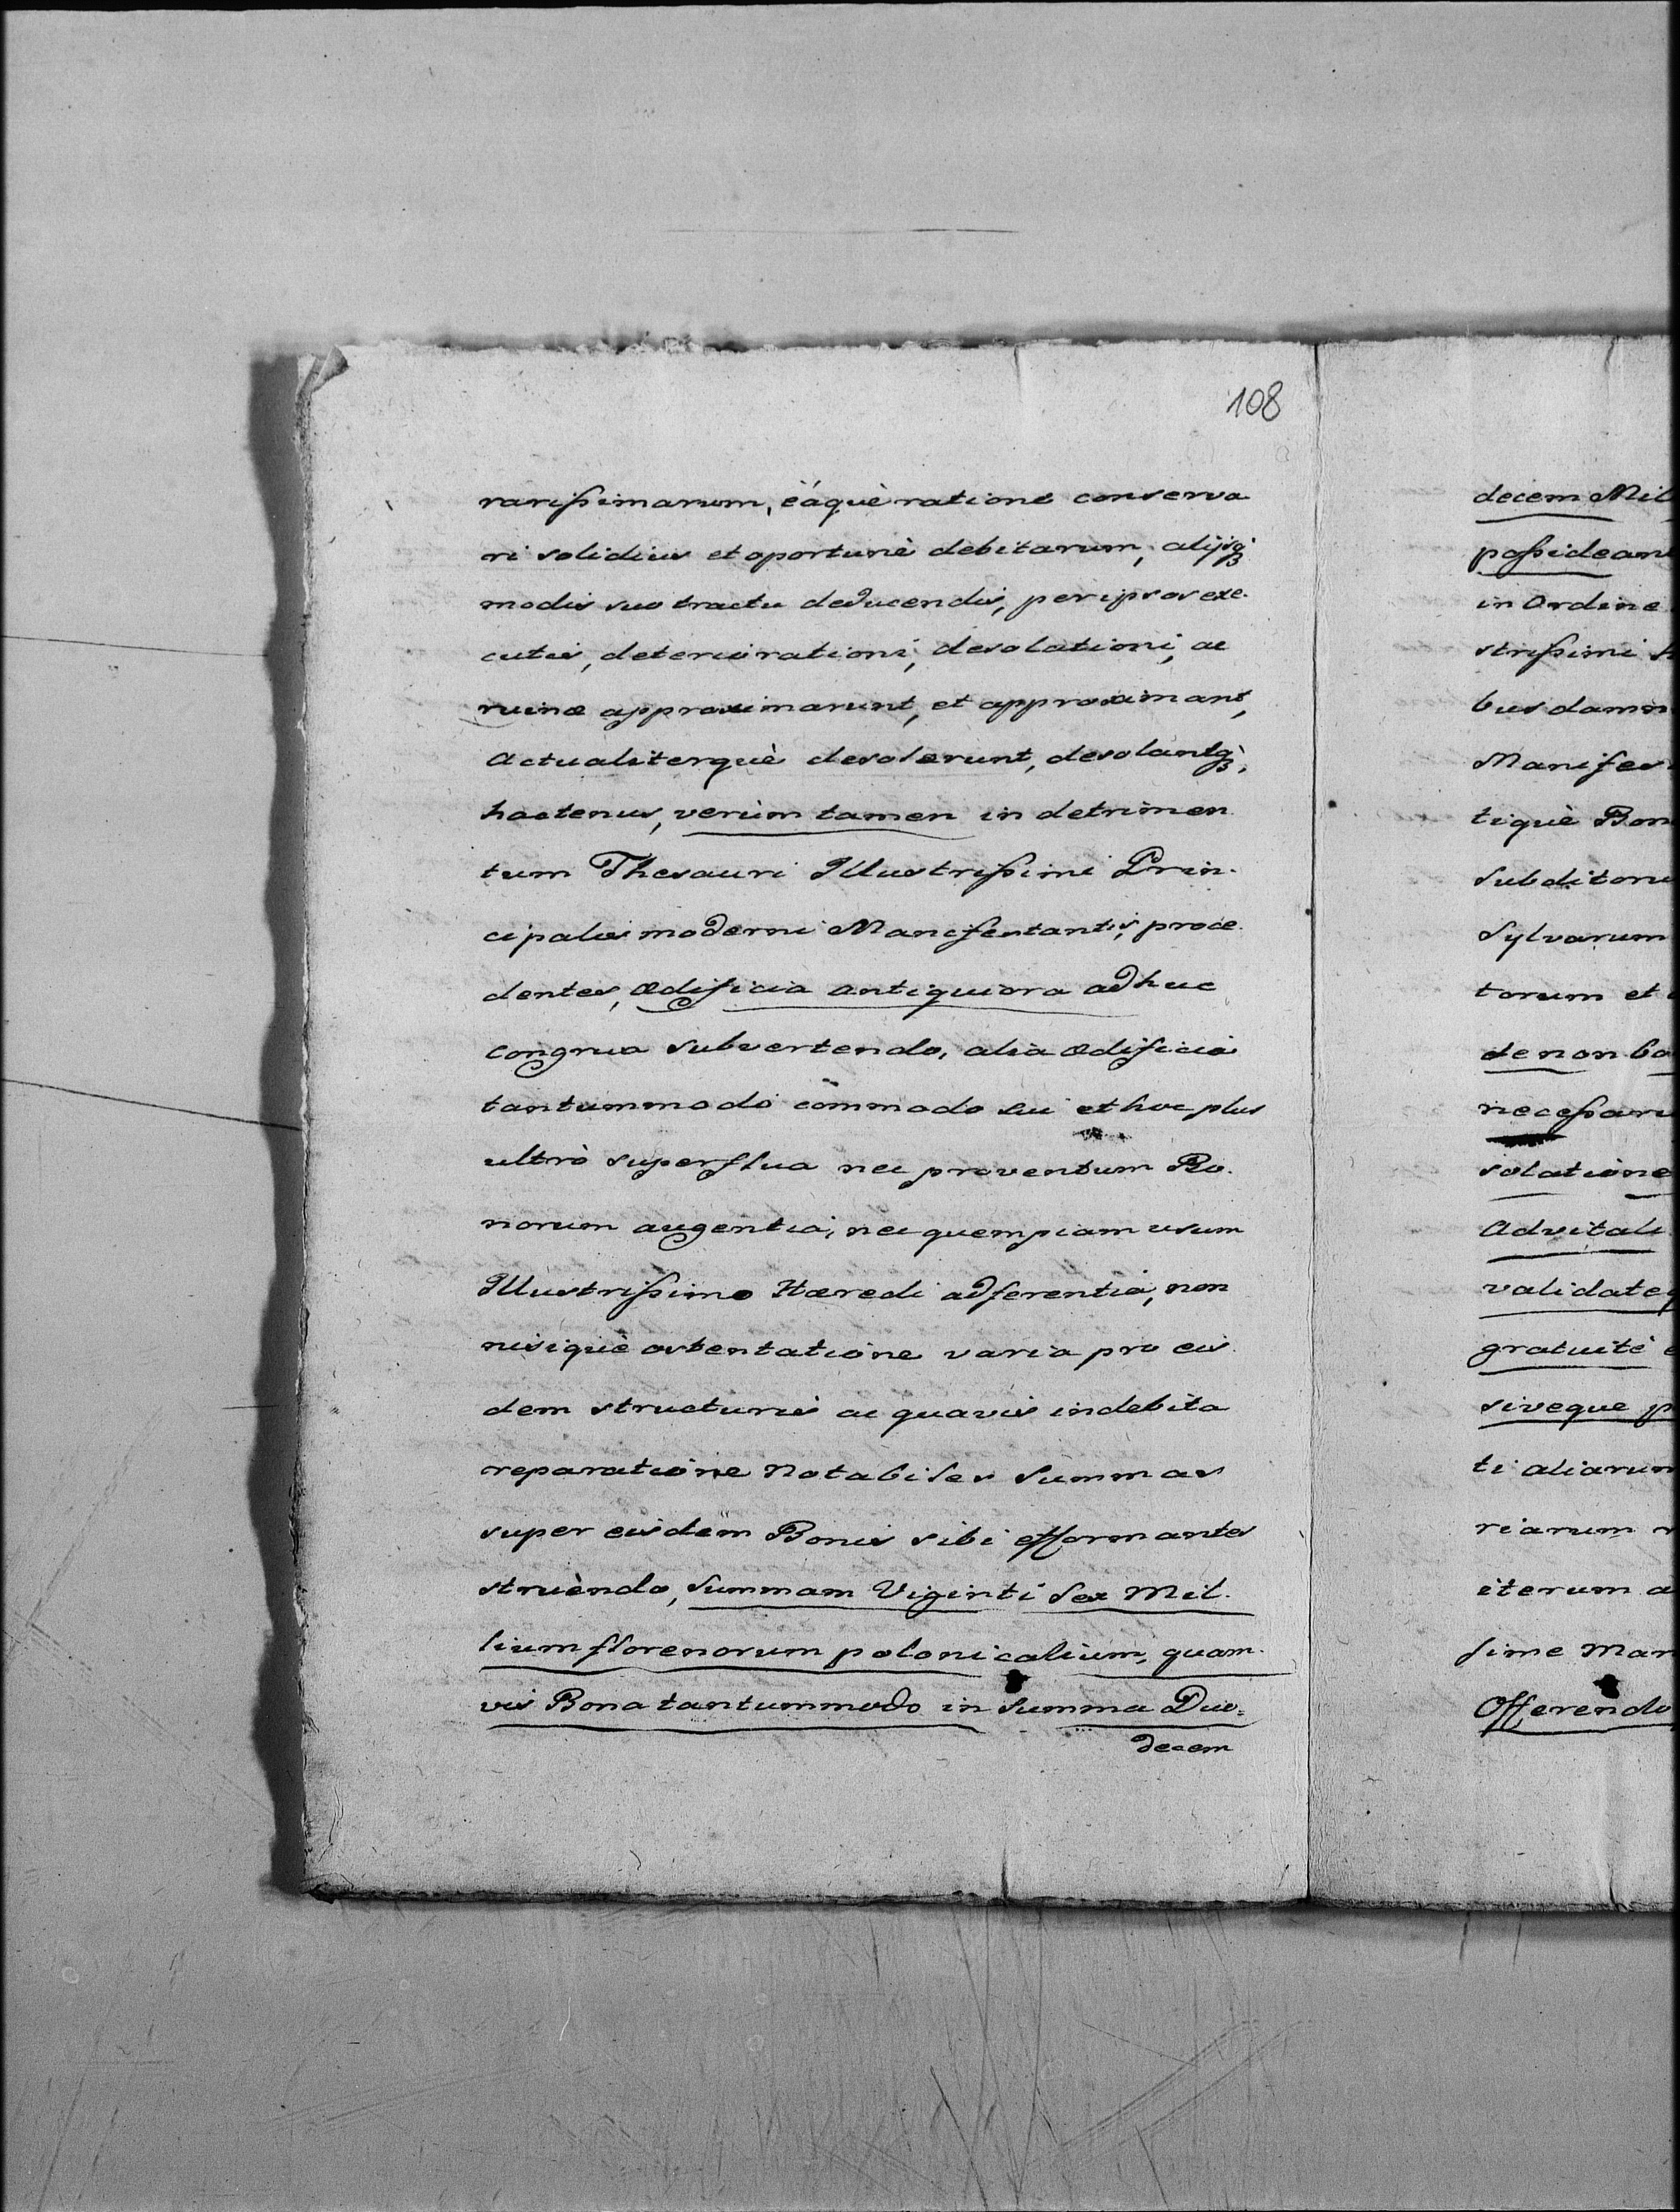 108
rarissimarum, eáque ratione conserva
ri solidius et oportunè debitarum, alijsq́
modis suo tractu deducendis, per ipsos exe-
cutis, deteriorationi, desolationi, ac
ruinæ approximarunt, et approximant,
Actualiterquè desolarunt, desolantq̀,
hactenus, verùm tamen in detrimen
tum Thesauri Illustrissimi Prin-
cipalis moderni Manifestantis, proce-
dentes, ædificia antiquiora adhuc
congrua subvertendo, alia ædificia
tantummodo commodo sui et hoc plus
ultrò superflua nec proventum Bo-
norum augentia, nec quempiam usum
Illustrissimo Hæredi adferentia, non
nisiquè ostentatione varia pro eis
dem structuris ac quavis indebita
reparatione Notabiles Summas
super eisdem Bonis sibi efformantes
struèndo, Summam Viginti Sex Mil-
lium florenorum polonicalium, quam-
vis Bona tantummodo in Summa Duo=
decem
decem Mil
possideant
in Ordine
strissimi
bus damn
Manifes
tiquè Bon
Subditoru
Sylvarum
torum et
de non bo
necessari
solatione
Advitali
validateq
gratuitè
siveque p
ti aliarum
riarum
iterum a
sime Man
Offerendo